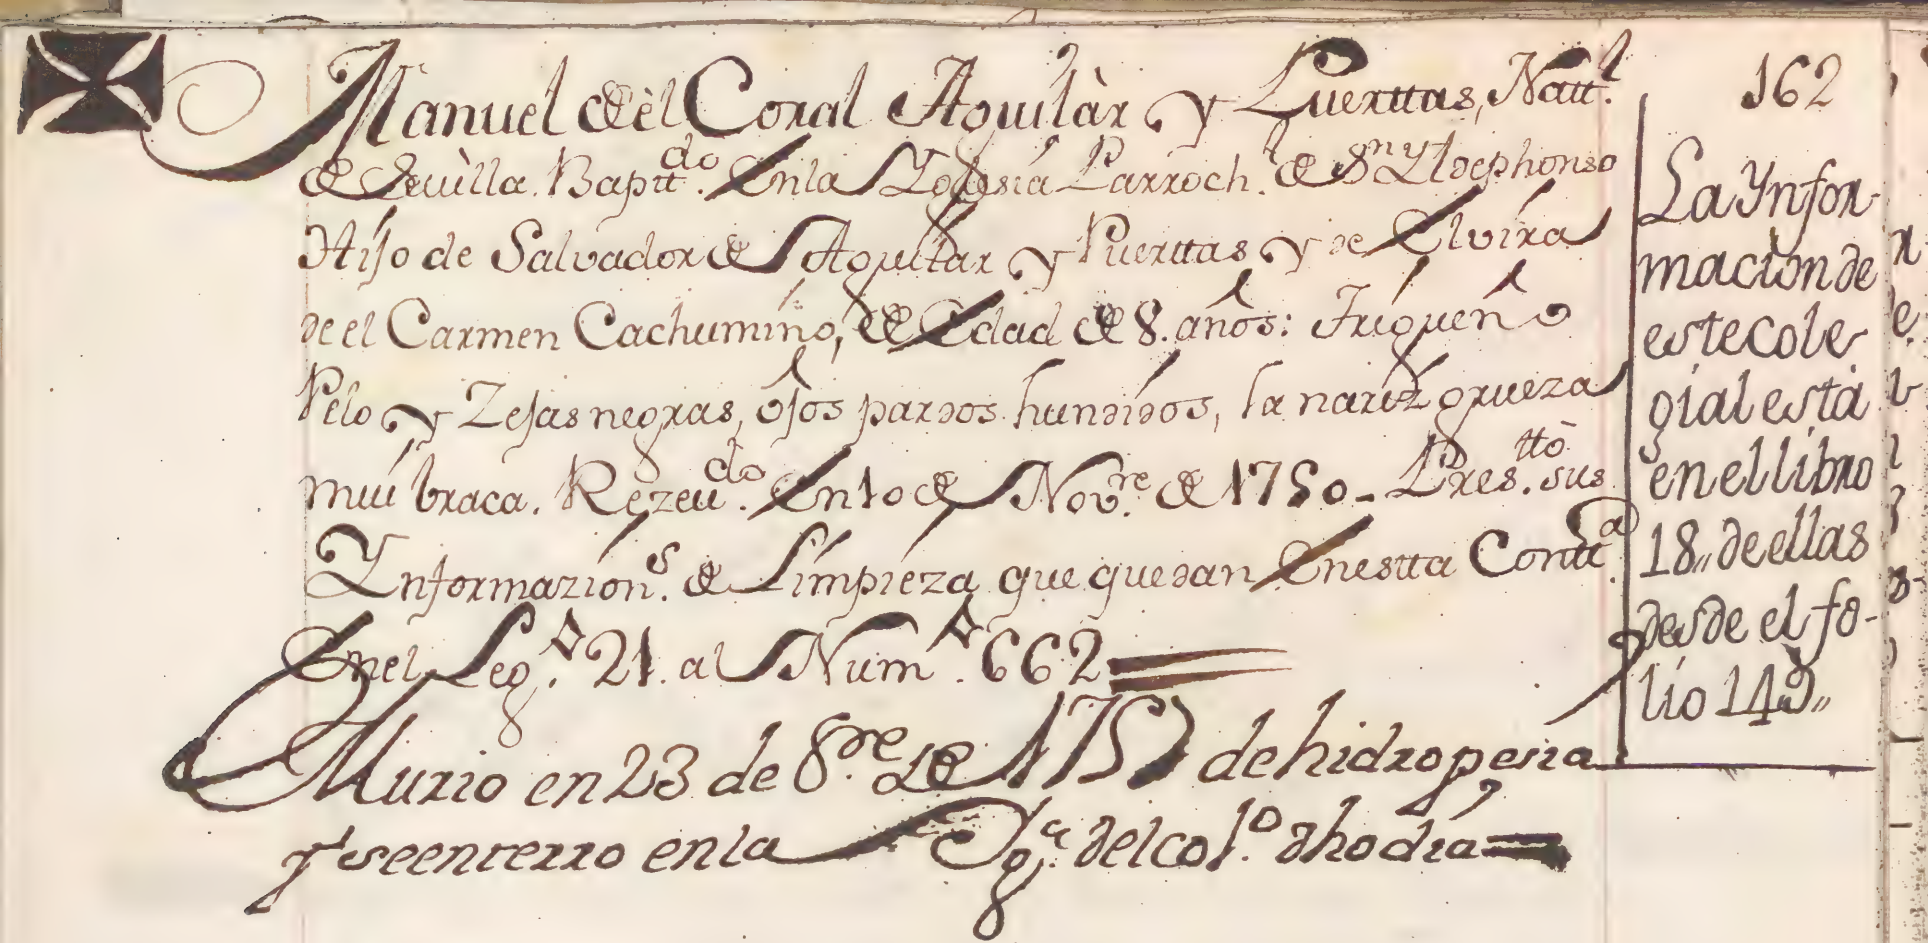 Manuel de èl Coral Aguilàr y Puerttas, Natt.l
de Sevìlla. Baptt.do En la Yglesia Parroch.l de S.n Yldephonso
Hijo de Salvador de Aguilar y Puerttas y de Elvira
de el Carmen Cachumiño, de Edad de 8. años: Trigueño
Pelo y Zejas negras, ojos pardos hundidos, la nariz grueza
mui braca. Rezeu.do En 10 de Nov.re de 1750 - Pres.ttò sus
Ynformazion.s de Limpieza que quedan En estta Contt.a
En el Leg.o 21. al Num.o 662
Murio en 23 de 8.re de 1757 de hidropesia
y seenterro en la Yg.a del col.o dho dia
162
La Ynfor-
macion de
este cole
gial està
en el libro
18,, de ellas
desde el fo-
lio 149,,